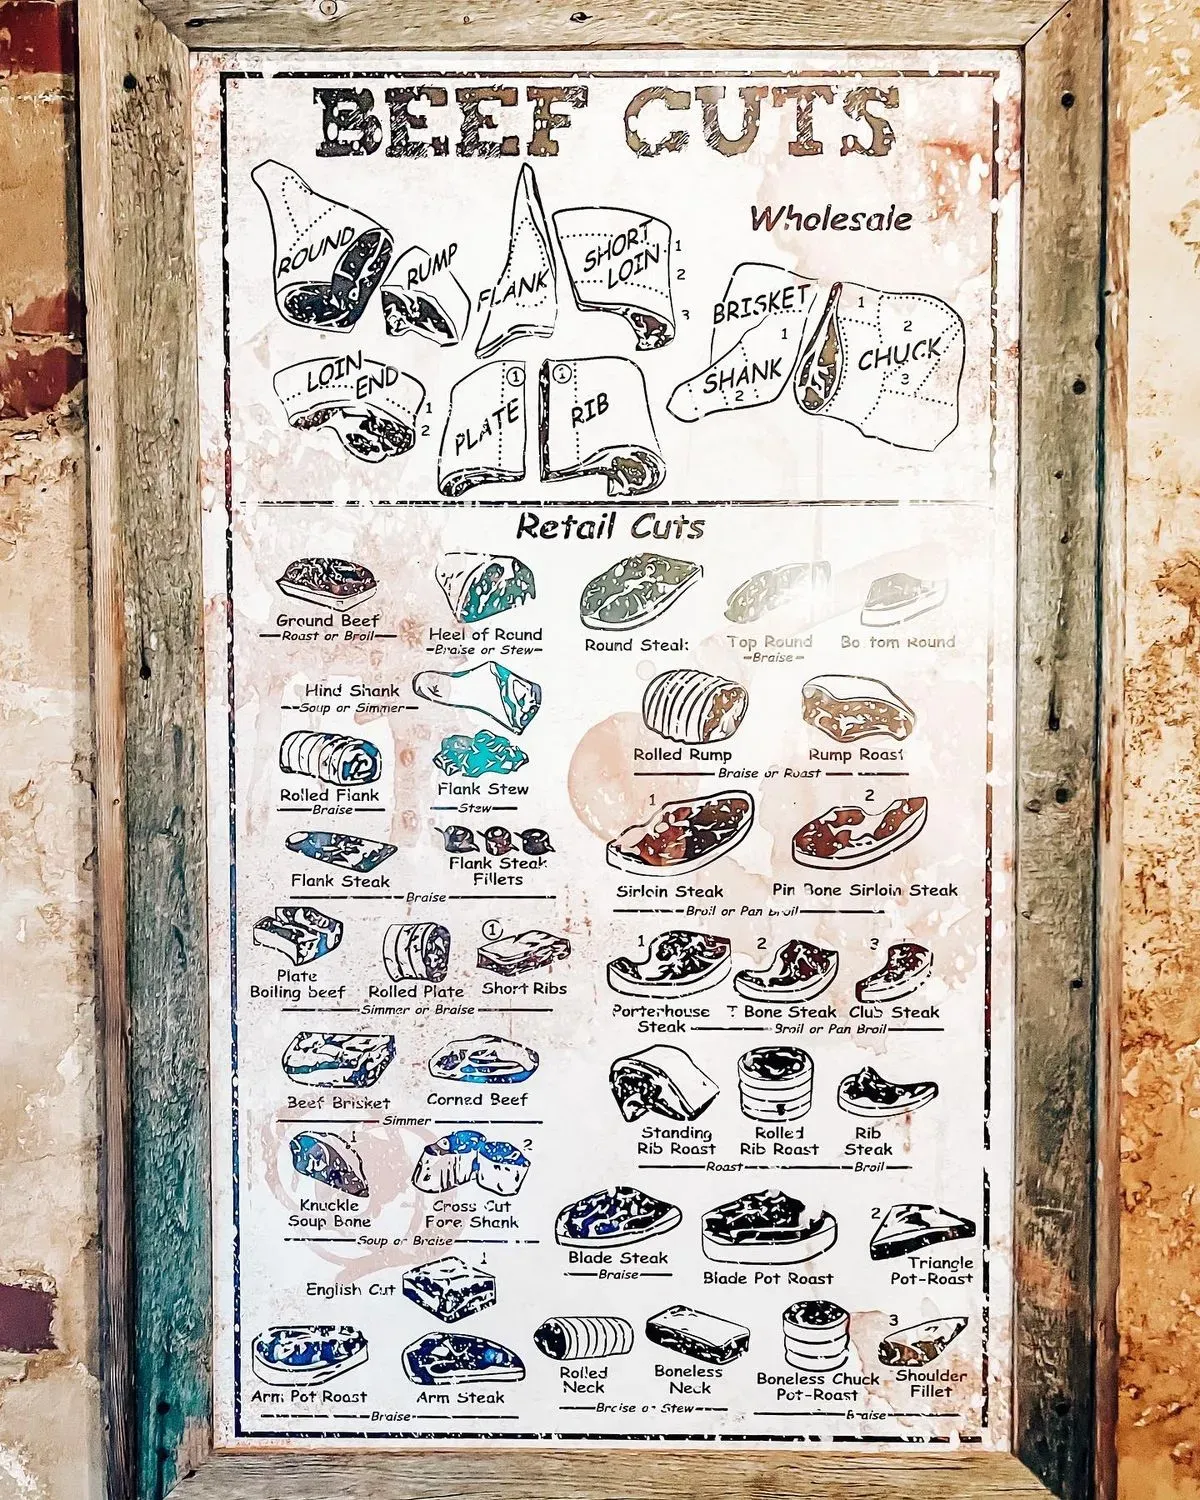 BEEF CUTS
Wholesale
ROUND
RUMP
FLANK
SHORT
LOIN
1
2
3
BRISKET
1
SHANK
2
1
2
CHUCK
3
LOIN
END
1
2
1
PLATE
1
RIB
Retail Cuts
Ground Beef
Roast or Broil
Heel of Round
Braise or Stew
Round Steak
Top Round
Braise
Bottom Round
Hind Shank
Soup or Simmer
Rolled Rump
Rump Roast
Braise or Roast
Rolled Flank
Braise
Flank Stew
Stew
1
2
Flank Steak
Flank Steak
Fillets
Braise
Sirloin Steak
Pin Bone Sirloin Steak
Broil or Pan Broil
Plate
Boiling beef
Rolled Plate
1
Short Ribs
Simmer or Braise
1
2
3
Porterhouse
Steak
T Bone Steak
Club Steak
Broil or Pan Broil
Beef Brisket
Corned Beef
Simmer
Standing
Rib Roast
Rolled
Rib Roast
Rib
Steak
Roast
Broil
1
2
Knuckle
Soup Bone
Cross Cut
Fore Shank
Soup or Braise
Blade Steak
Braise
Blade Pot Roast
2
Triangle
Pot-Roast
English Cut
1
Arm Pot Roast
Arm Steak
Braise
Rolled
Neck
Boneless
Neck
Braise or Stew
Boneless Chuck
Pot-Roast
3
Shoulder
Fillet
Braise